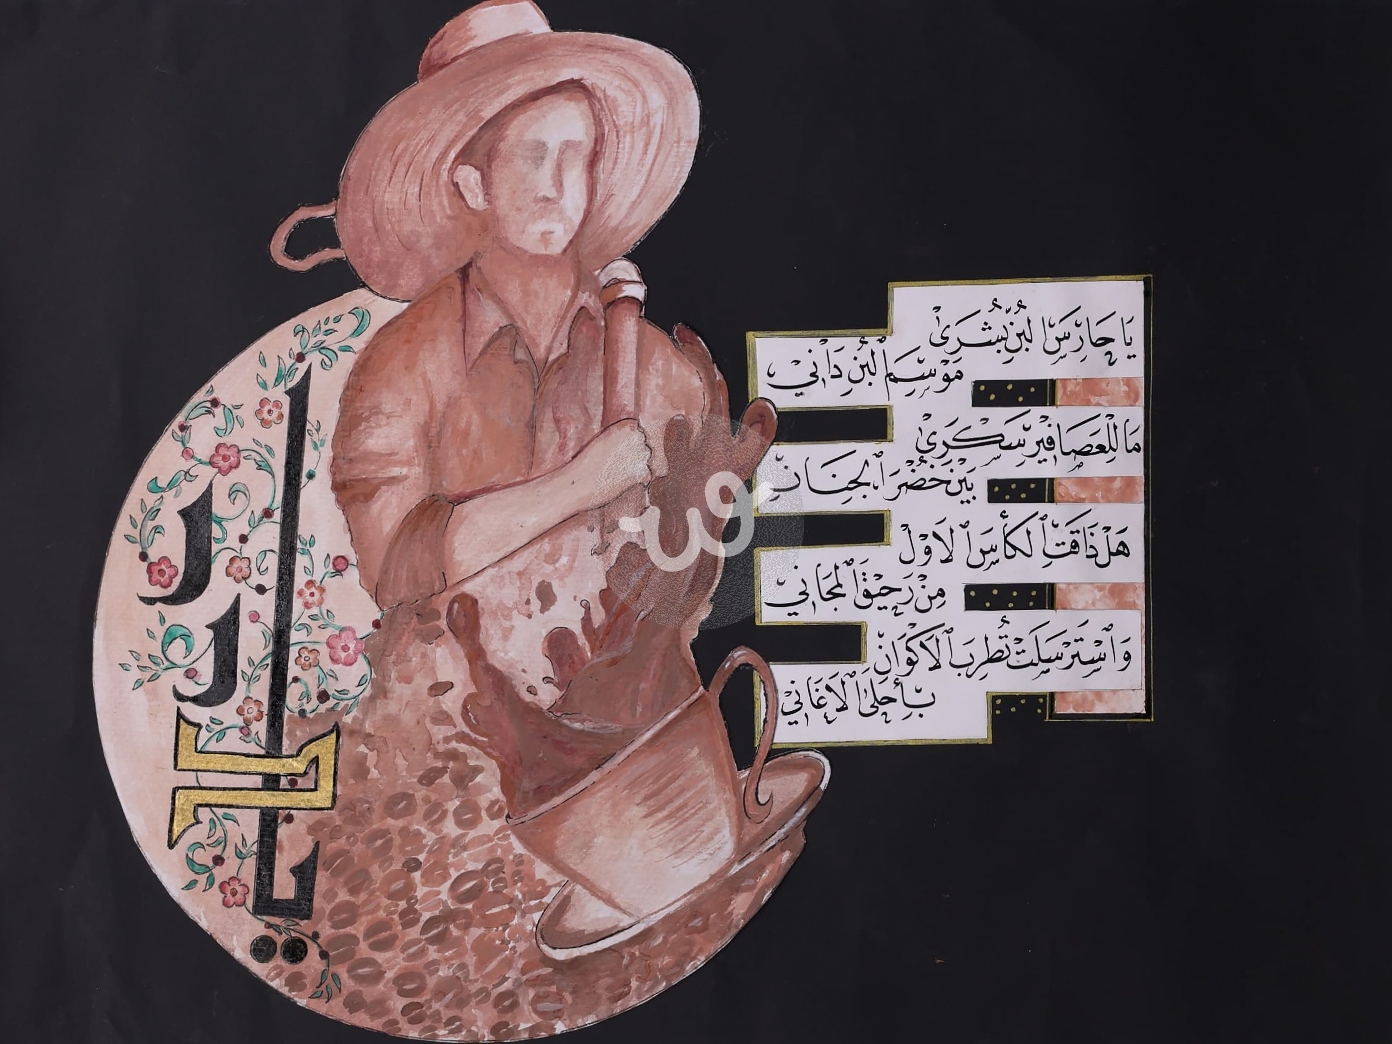 يَا حَارِسَ الْبُنِّ بُشْرَىٰ
مَوْسِمُ الْبُنِّ دَانِي
مَا لِلْعَصَافِيرِ سَكْرَىٰ
بَيْنَ خُضْرِ الْجِنَانِ
هَلْ ذَاقَتِ الْكَأْسَ الْاَوْلَ
مِنْ رَحِيْقِ الْمَجَانِي
وَاسْتَرْسَلَتْ تُطْرِبُ الْاَكْوَانَ
بِأَحْلَى الْاَغَانِي